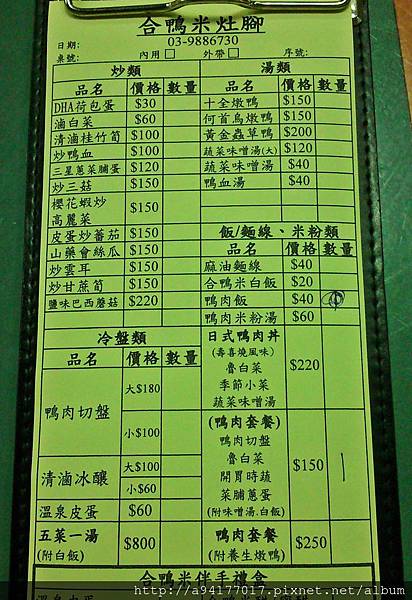 合鴨米灶腳
03-9886730
日期:
桌號:
內用□
外帶□
序號:
炒類
品名 價格 數量
DHA荷包蛋 $30
滷白菜 $60
清滷桂竹筍 $100
炒鴨血 $100
三星蔥菜脯蛋 $120
炒三菇 $150
櫻花蝦炒
高麗菜 $150
皮蛋炒蕃茄 $150
山藥會絲瓜 $150
炒雲耳 $150
炒甘蔗筍 $150
鹽味巴西蘑菇 $220
冷盤類
品名 價格 數量
鴨肉切盤
大$180
小$100
清滷冰釀
大$100
小$60
溫泉皮蛋 $60
五菜一湯
(附白飯) $800
湯類
品名 價格 數量
十全燉鴨 $150
何首烏燉鴨 $150
黃金蟲草鴨 $200
蔬菜味噌湯(大) $120
蔬菜味噌湯 $40
鴨血湯 $40
飯/麵線、米粉類
品名 價格 數量
麻油麵線 $40
合鴨米白飯 $20
鴨肉飯 $40
鴨肉米粉湯 $60
日式鴨肉丼
(壽喜燒風味)
魯白菜
季節小菜
蔬菜味噌湯
$220
(鴨肉套餐)
鴨肉切盤
魯白菜
開胃時蔬
菜脯蔥蛋
(附味噌湯.白飯)
$150
鴨肉套餐
(附養生燉鴨) $250
合鴨米伴手禮盒
http://a94177017.pixnet.net/album